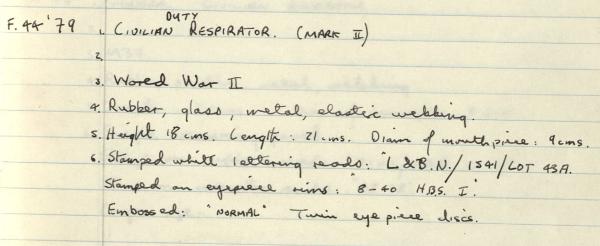 F.44'79 1. CIVILIAN DUTY RESPIRATOR. (MARK II)
2.
3. World War II
4. Rubber, glass, metal, elastic webbing.
5. Height 18 cms. Length: 21 cms. Diam of mouthpiece: 9 cms.
6. Stamped white lettering reads: "L&B.N./1541/LOT 43A.
Stamped on eyepiece rims: "8-40 H.B.S. I".
Embossed: "NORMAL" Twin eyepiece discs.